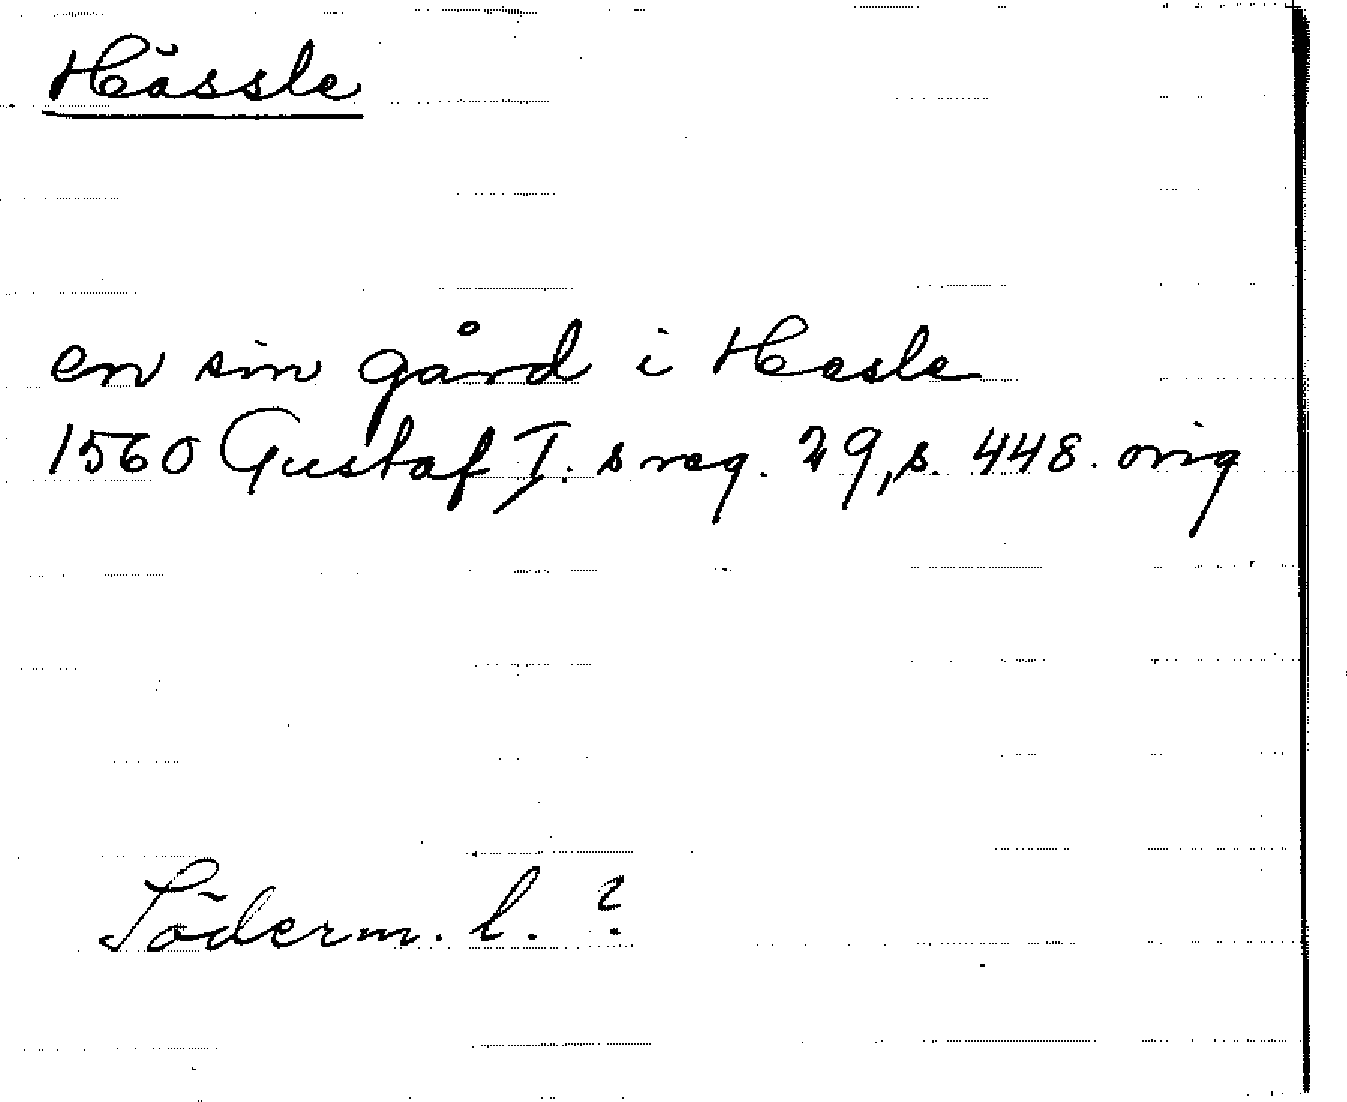 Hässle
en sin gård i Hesle
1560 Gustaf I. s reg. 29, s. 448. orig
Söderm. l. ?